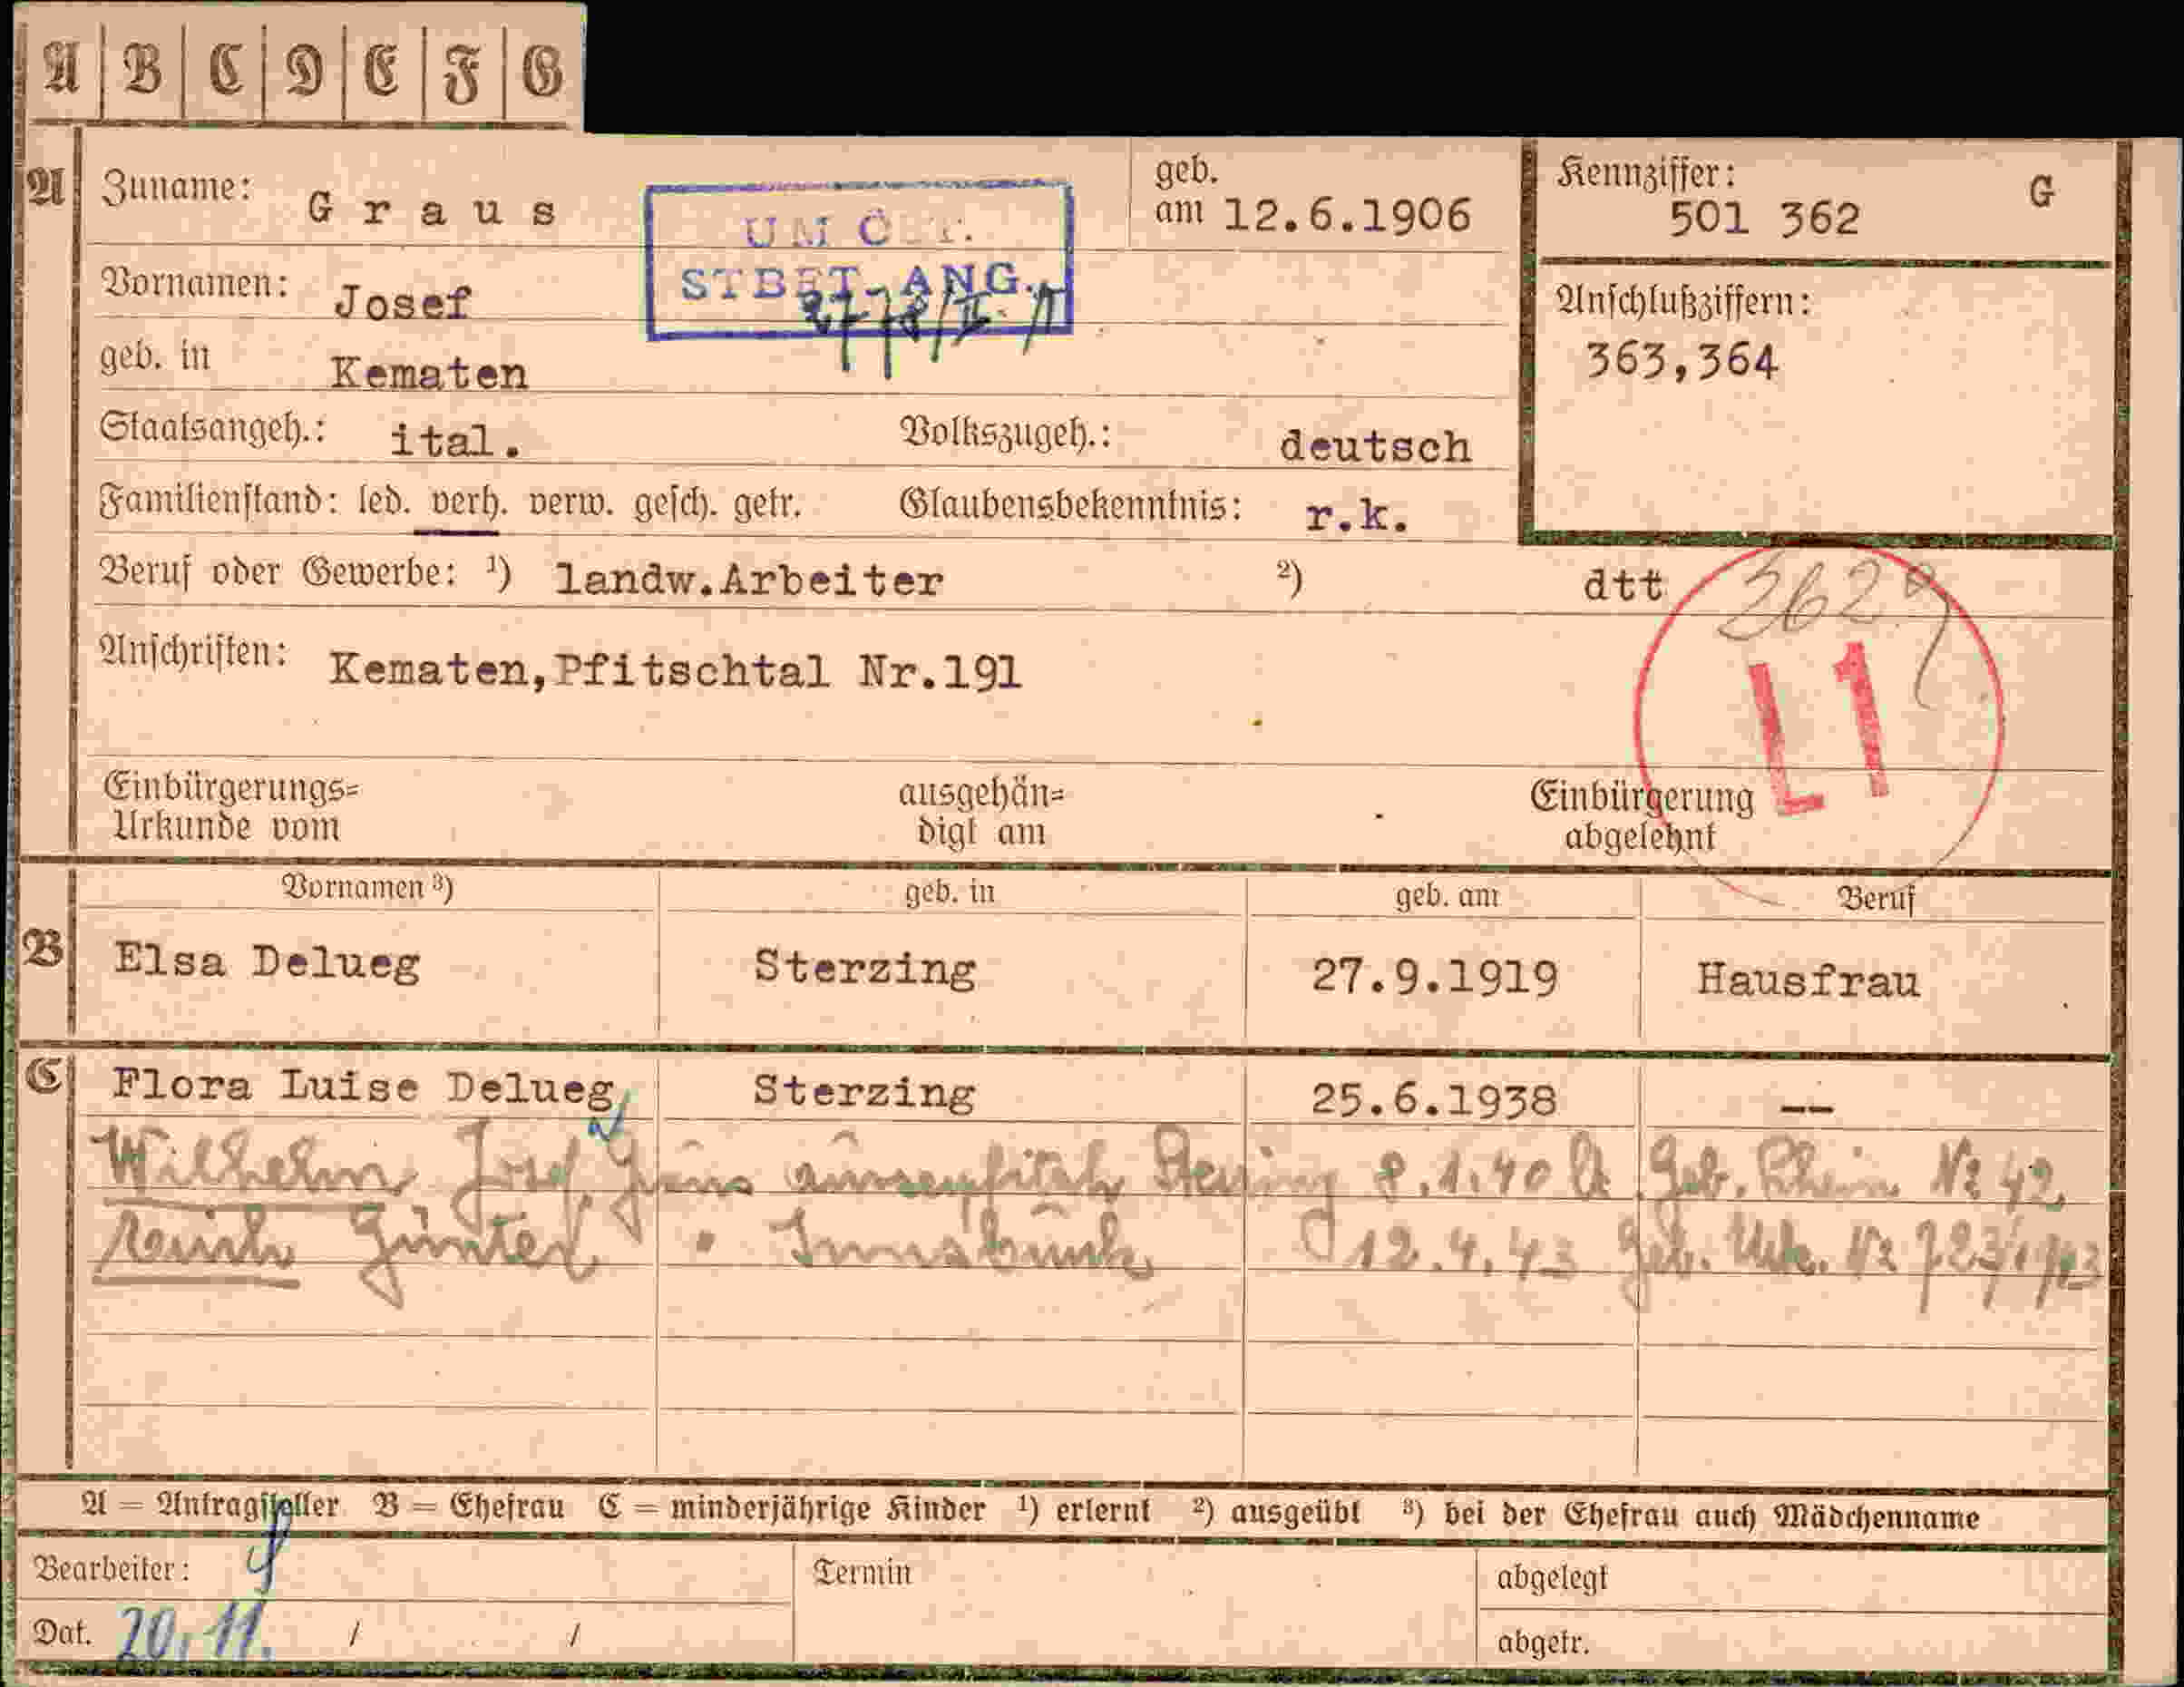 A B C D E F G
A Zuname: Graus geb. am 12.6.1906 Kennziffer: 501 362 G
Vornamen: Josef STBET-ANG. Anschlußziffern: 363,364
geb. in Kematen
Staatsangeh.: ital. Volkszugeh.: deutsch
Familienstand: led. verh. verw. gesch. getr. Glaubensbekenntnis: r.k.
Beruf oder Gewerbe: ¹) landw.Arbeiter ²) dtt 3629
Anschriften: Kematen,Pfitschtal Nr.191
L1
Einbürgerungs= ausgehän= Einbürgerung
Urkunde vom digt am abgelehnt
Vornamen ³) geb. in geb. am Beruf
B Elsa Delueg Sterzing 27.9.1919 Hausfrau
C Flora Luise Delueg Sterzing 25.6.1938 --
Wilhelm Josef Sterzing 8.1.40 Geb. Nr 42
Günter Innsbruck 12.4.43 Geb. Urk. Nr 723/1943
A = Antragsteller B = Ehefrau C = minderjährige Kinder ¹) erlernt ²) ausgeübt ³) bei der Ehefrau auch Mädchenname
Bearbeiter: Termin abgelegt
Dat. 20.11. / / abgetr.